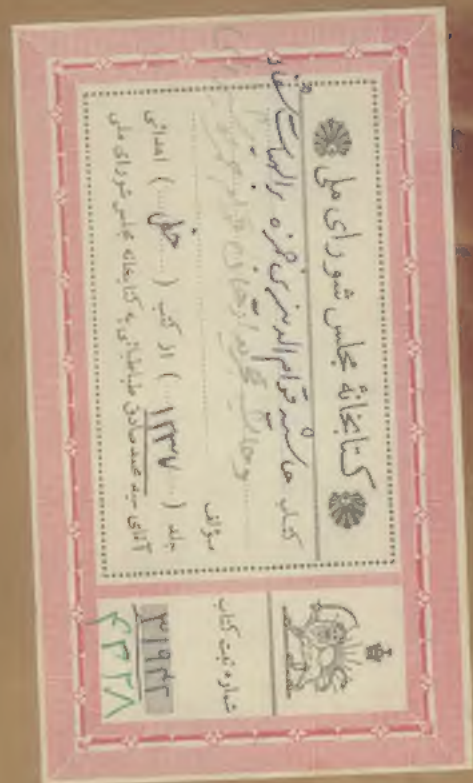 کتابخانهٔ مجلس شورای ملی
کتاب حاشیه قوام الدین بن حمزه بر الهیات شفا
و حاشیه
مؤلف
جلد (۱۲۳۷) از کتب (خطی) اهدائی
آقای سید محمد صادق طباطبائی به کتابخانه مجلس شورای ملی
شماره ثبت کتاب
۳۱۹۴۲
۴۳۳۸